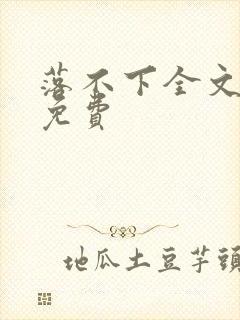 落不下全文
免費
地瓜土豆芋頭